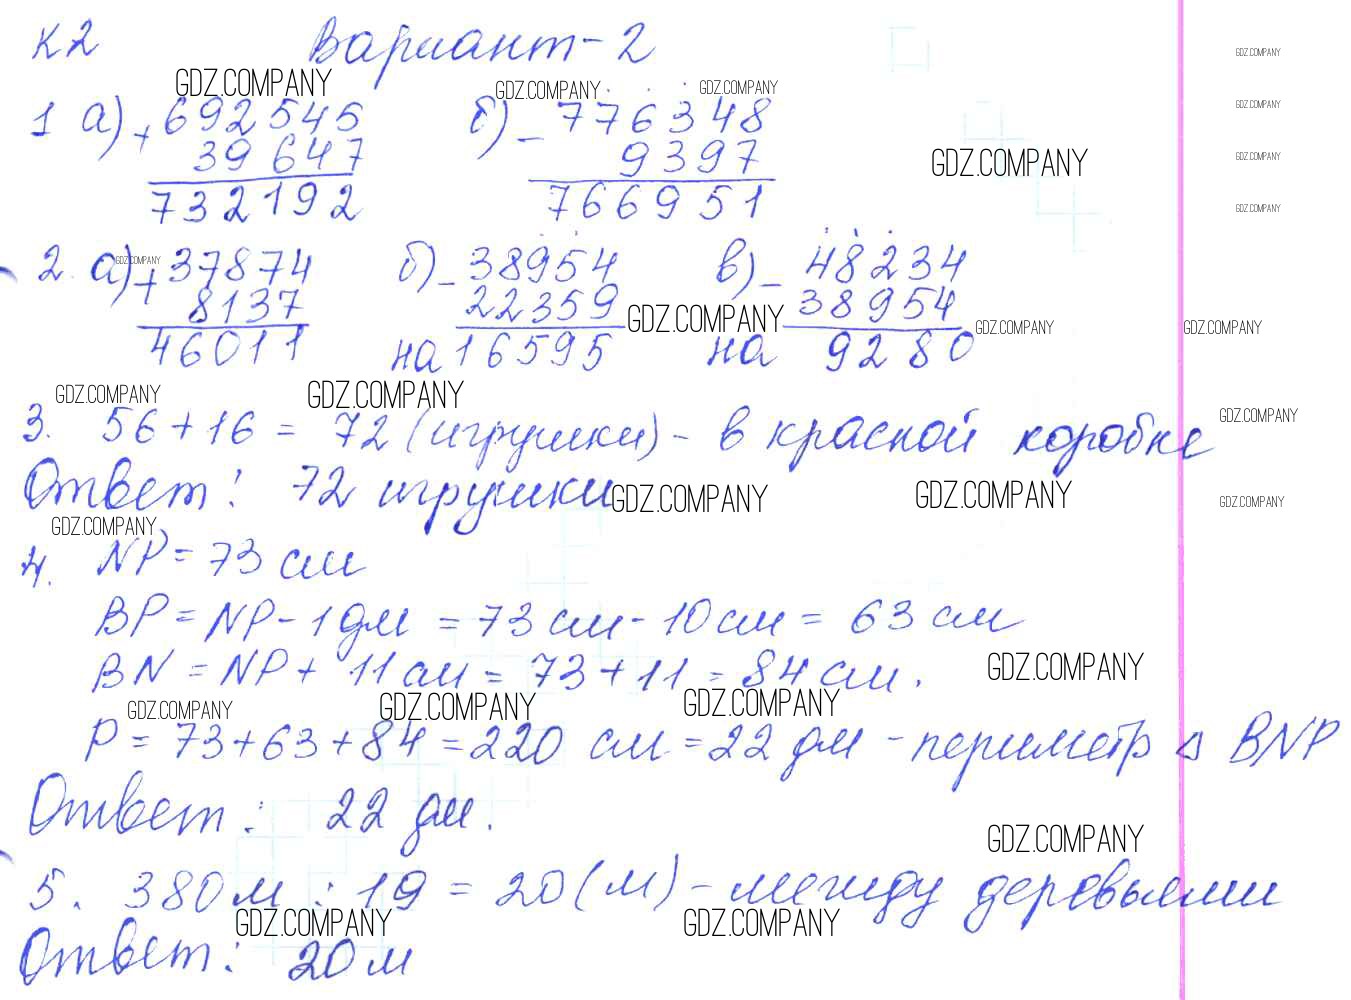 К2 Вариант-2
GDZ.COMPANY GDZ.COMPANY GDZ.COMPANY GDZ.COMPANY
1 а) + 692545 б) - 776348 GDZ.COMPANY
39647 9397 GDZ.COMPANY GDZ.COMPANY
732192 766951 GDZ.COMPANY
2. а) + 37874 б) - 38954 в) - 48234
GDZ.COMPANY
8137 22359 38954
GDZ.COMPANY GDZ.COMPANY GDZ.COMPANY
46011 на 16595 на 9280
GDZ.COMPANY GDZ.COMPANY GDZ.COMPANY
3. 56 + 16 = 72 (игрушки) - в красной коробке
Ответ: 72 игрушки GDZ.COMPANY GDZ.COMPANY GDZ.COMPANY
GDZ.COMPANY
4. NP = 73 см
BP = NP - 1 дм = 73 см - 10 см = 63 см
BN = NP + 11 см = 73 + 11 = 84 см. GDZ.COMPANY
GDZ.COMPANY GDZ.COMPANY GDZ.COMPANY
P = 73 + 63 + 84 = 220 см = 22 дм - периметр △ BNP
Ответ: 22 дм.
GDZ.COMPANY
5. 380 м : 19 = 20 (м) - между деревьями
GDZ.COMPANY GDZ.COMPANY
Ответ: 20 м